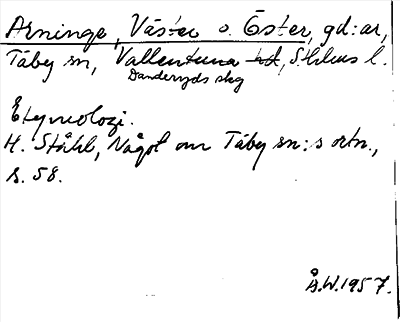 Arninge, Väster o. Öster, gd:ar,
Täby sn, Vallentuna hd, Sthlms l.
Danderyds skg
Etymologi.
H. Ståhl, Något om Täby sn:s ortn.,
s. 58.
Å.W.1957.